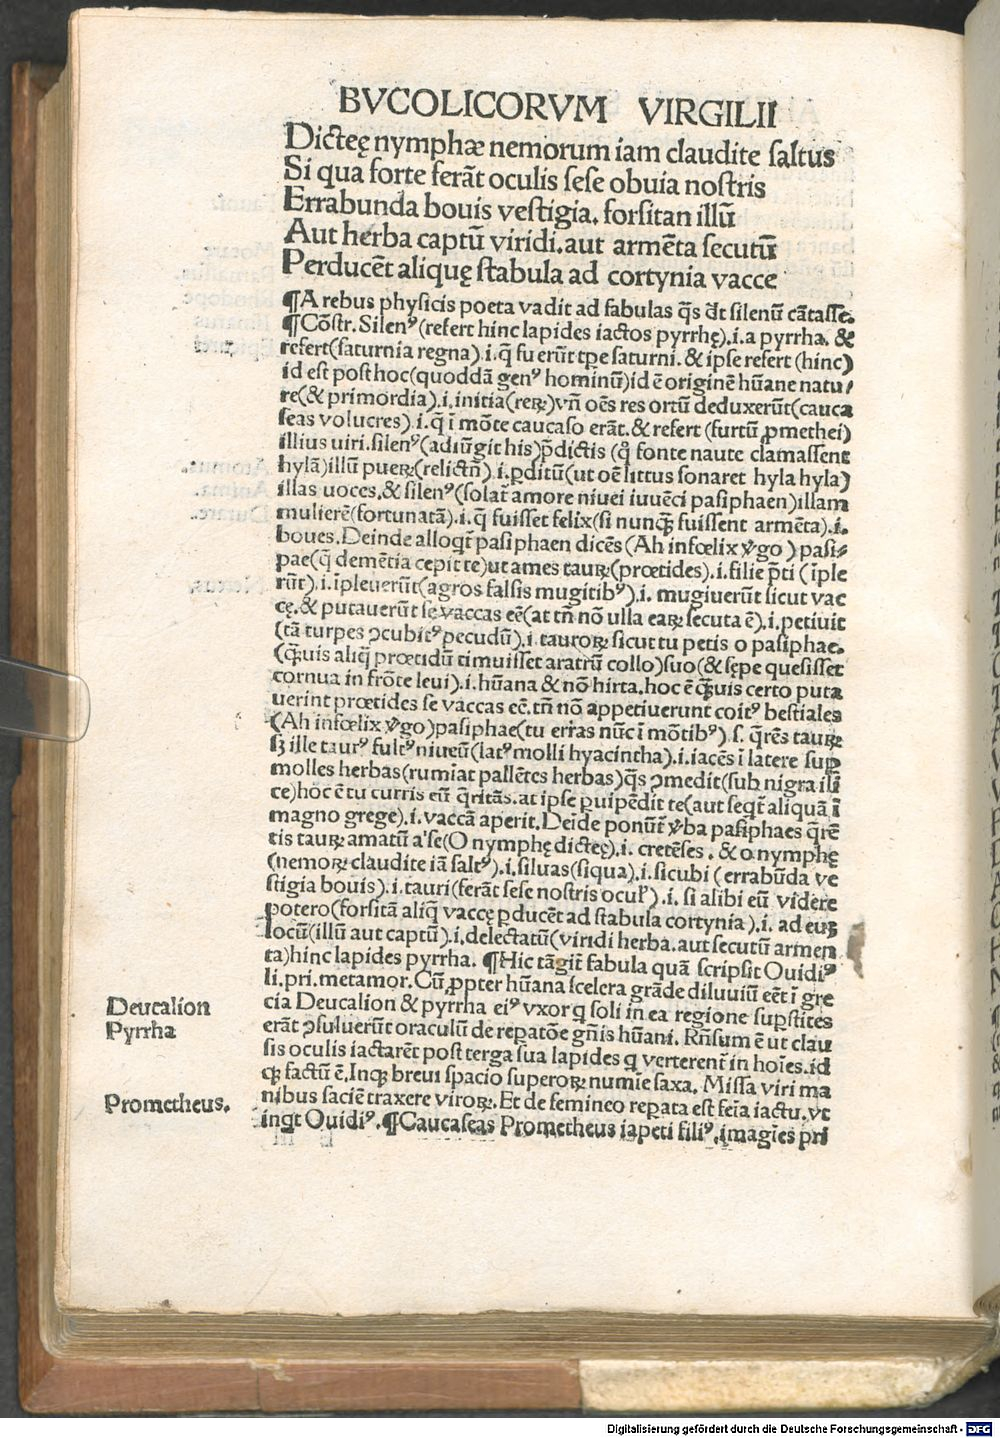 BVCOLICORVM VIRGILII
Dicteę nymphæ nemorum iam claudite saltus
Si qua forte ferāt oculis sese obuia nostris
Errabunda bouis vestigia. forsitan illū
Aut herba captū viridi. aut armēta secutū
Perducēt aliquę stabula ad cortynia vacce
¶A rebus physicis poeta vadit ad fabulas q̄s d̄t silenū cātasse.
¶Cōstr. Silenꝰ (refert hinc lapides iactos pyrrhę).i.a pyrrha. &
refert(saturnia regna).i.q̄ fuerūt tꝑe saturni. & ipse refert (hinc)
id est post hoc(quoddā genꝰ hominū)id ē originē hūane natu/
re(& primordia).i.initia(reꝝ)vn̄ oēs res ortū deduxerūt(cauca
seas volucres).i.q̄ ī mōte caucaso erāt.& refert (furtū ꝓmethei)
illius uiri.silenꝰ(adiūgit his)p̄dictis (q̊ fonte naute clamassent
hylā)illū pueꝝ(relictū).i.ꝑditū(ut oē littus sonaret hyla hyla)
illas uoces.& silenꝰ(solat̄ amore niuei iuuēci pasiphaen)illam
mulierē(fortunatā).i.q̄ fuisset felix(si nunq̄ fuissent armēta).i.
boues.Deinde alloqt̄ pasiphaen dicēs (Ah infœlix v̄go) pasi⸗
pae(q̄ demētia cepit te)ut ames tauꝝ(prœtides).i.filie p̄ti (īple
rūt).i.īpleuerūt(agros falsis mugitibꝰ).i. mugiuerūt sicut vac
cę.& putauerūt se vaccas eē(at tn̄ nō ulla eaꝝ secuta ē).i.petiuit
(tā turpes ꝯcubitꝰ pecudū).i.tauroꝝ sicut tu petis o pasiphae.
(q̄uis aliq̄ prœtidū timuisset aratrū collo)suo(& sępe quesisset
cornua in frōte leui).i.hūana & nō hirta.hoc ē q̄uis certo puta
uerint prœtides se vaccas eē.tn̄ nō appetiuerunt coitꝰ bestiales
(Ah infœlix v̄go)pasiphae(tu erras nūc ī mōtibꝰ).s. q̄rēs tauꝝ
sꝫ ille taurꝰ fultꝰ niueū(latꝰ molli hyacintha).i.iacēs ī latere suꝑ
molles herbas(rumiat pallētes herbas)q̄s ꝯmedit(sub nigra ili
ce)hoc ē tu curris eū q̄ritās.at ipse ꝑuipēdit te(aut seqt̄ aliquā ī
magno grege).i.vaccā aperit.Deīde ponūt̄ v̄ba pasiphaes q̄rē
tis tauꝝ amatū a'se(O nymphę dicteę).i. cretēses . & o nymphę
(nemoꝝ claudite iā saltꝰ).i.siluas(siqua).i.sicubi (errabūda ve
stigia bouis).i.tauri(ferāt sese nostris ocul̄).i. si alibi eū videre
potero(forsitā aliq̄ vaccę ꝑducēt ad stabula cortynia).i. ad euꝫ
locū(illū aut captū).i.delectatū(viridi herba.aut secutū armen
ta)hinc lapides pyrrha. ¶Hic tāgit̄ fabula quā scripsit Ouidiꝰ
li.pri.metamor.Cū ꝓpter hūana scelera grāde diluuiū eēt ī gre
cia Deucalion & pyrrha eiꝰ vxor q̱ soli in ea regione suꝑstites
erāt ꝯsuluerūt oraculū de reꝑatōe gn̄is hūani. Rn̄sum ē ut clau
sis oculis iactarēt post terga sua lapides q̱ verterent̄ in hoīes.id
qꝫ factū ē.Inqꝫ breui spacio superoꝝ numīe saxa. Missa viri ma
nibus faciē traxere viroꝝ. Et de femineo reꝑata est feīa iactu.vt
inqt Ouidiꝰ.¶Caucaseas Prometheus iapeti filiꝰ.imagīes pri
Deucalion
Pyrrha
Prometheus.
Digitalisierung gefördert durch die Deutsche Forschungsgemeinschaft - DFG